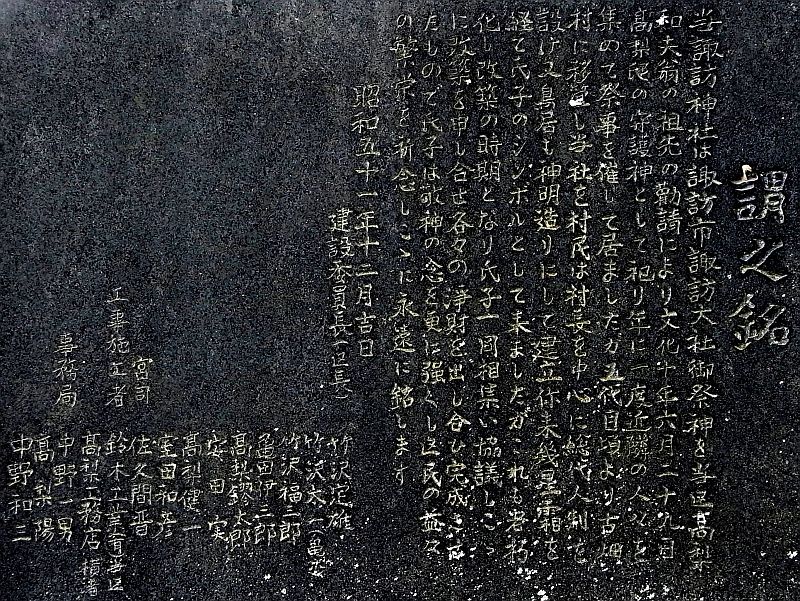 謂之銘
当諏訪神社は諏訪市諏訪大社御祭神を当区高梨
和夫翁の祖先の勧請により文化十年六月二十九日
高梨 の守護神として祀り年に一度近隣の人々を
集めて祭事を催して居ましたが五代目頃より古畑
村に移 し当社を村民は村長を中心に総代人制を
設け又鳥居も神明造りにして建立弥来幾星霜を
経て氏子のシンボルとして来ましたがこれも老朽
化し改築の時期となり氏子一同相集い協議しこゝ
に改築を申し合せ各々の浄財を出し合ひ完成 
たもので氏子は敬神の念を更に強くし区民の益々
の繁栄を祈念しこゝに永遠に銘します
昭和五十一年十二月吉日
建設委員長(区長) 竹沢定雄
竹沢太一
竹沢福三郎
亀田伊三郎
高梨 太郎
安田実
高梨健一
室田和彦
宮司 佐久間晋
工事施工者 鈴木工業 当区
高梨工務店 横 
事務局 中野一男
高梨陽
中野和三